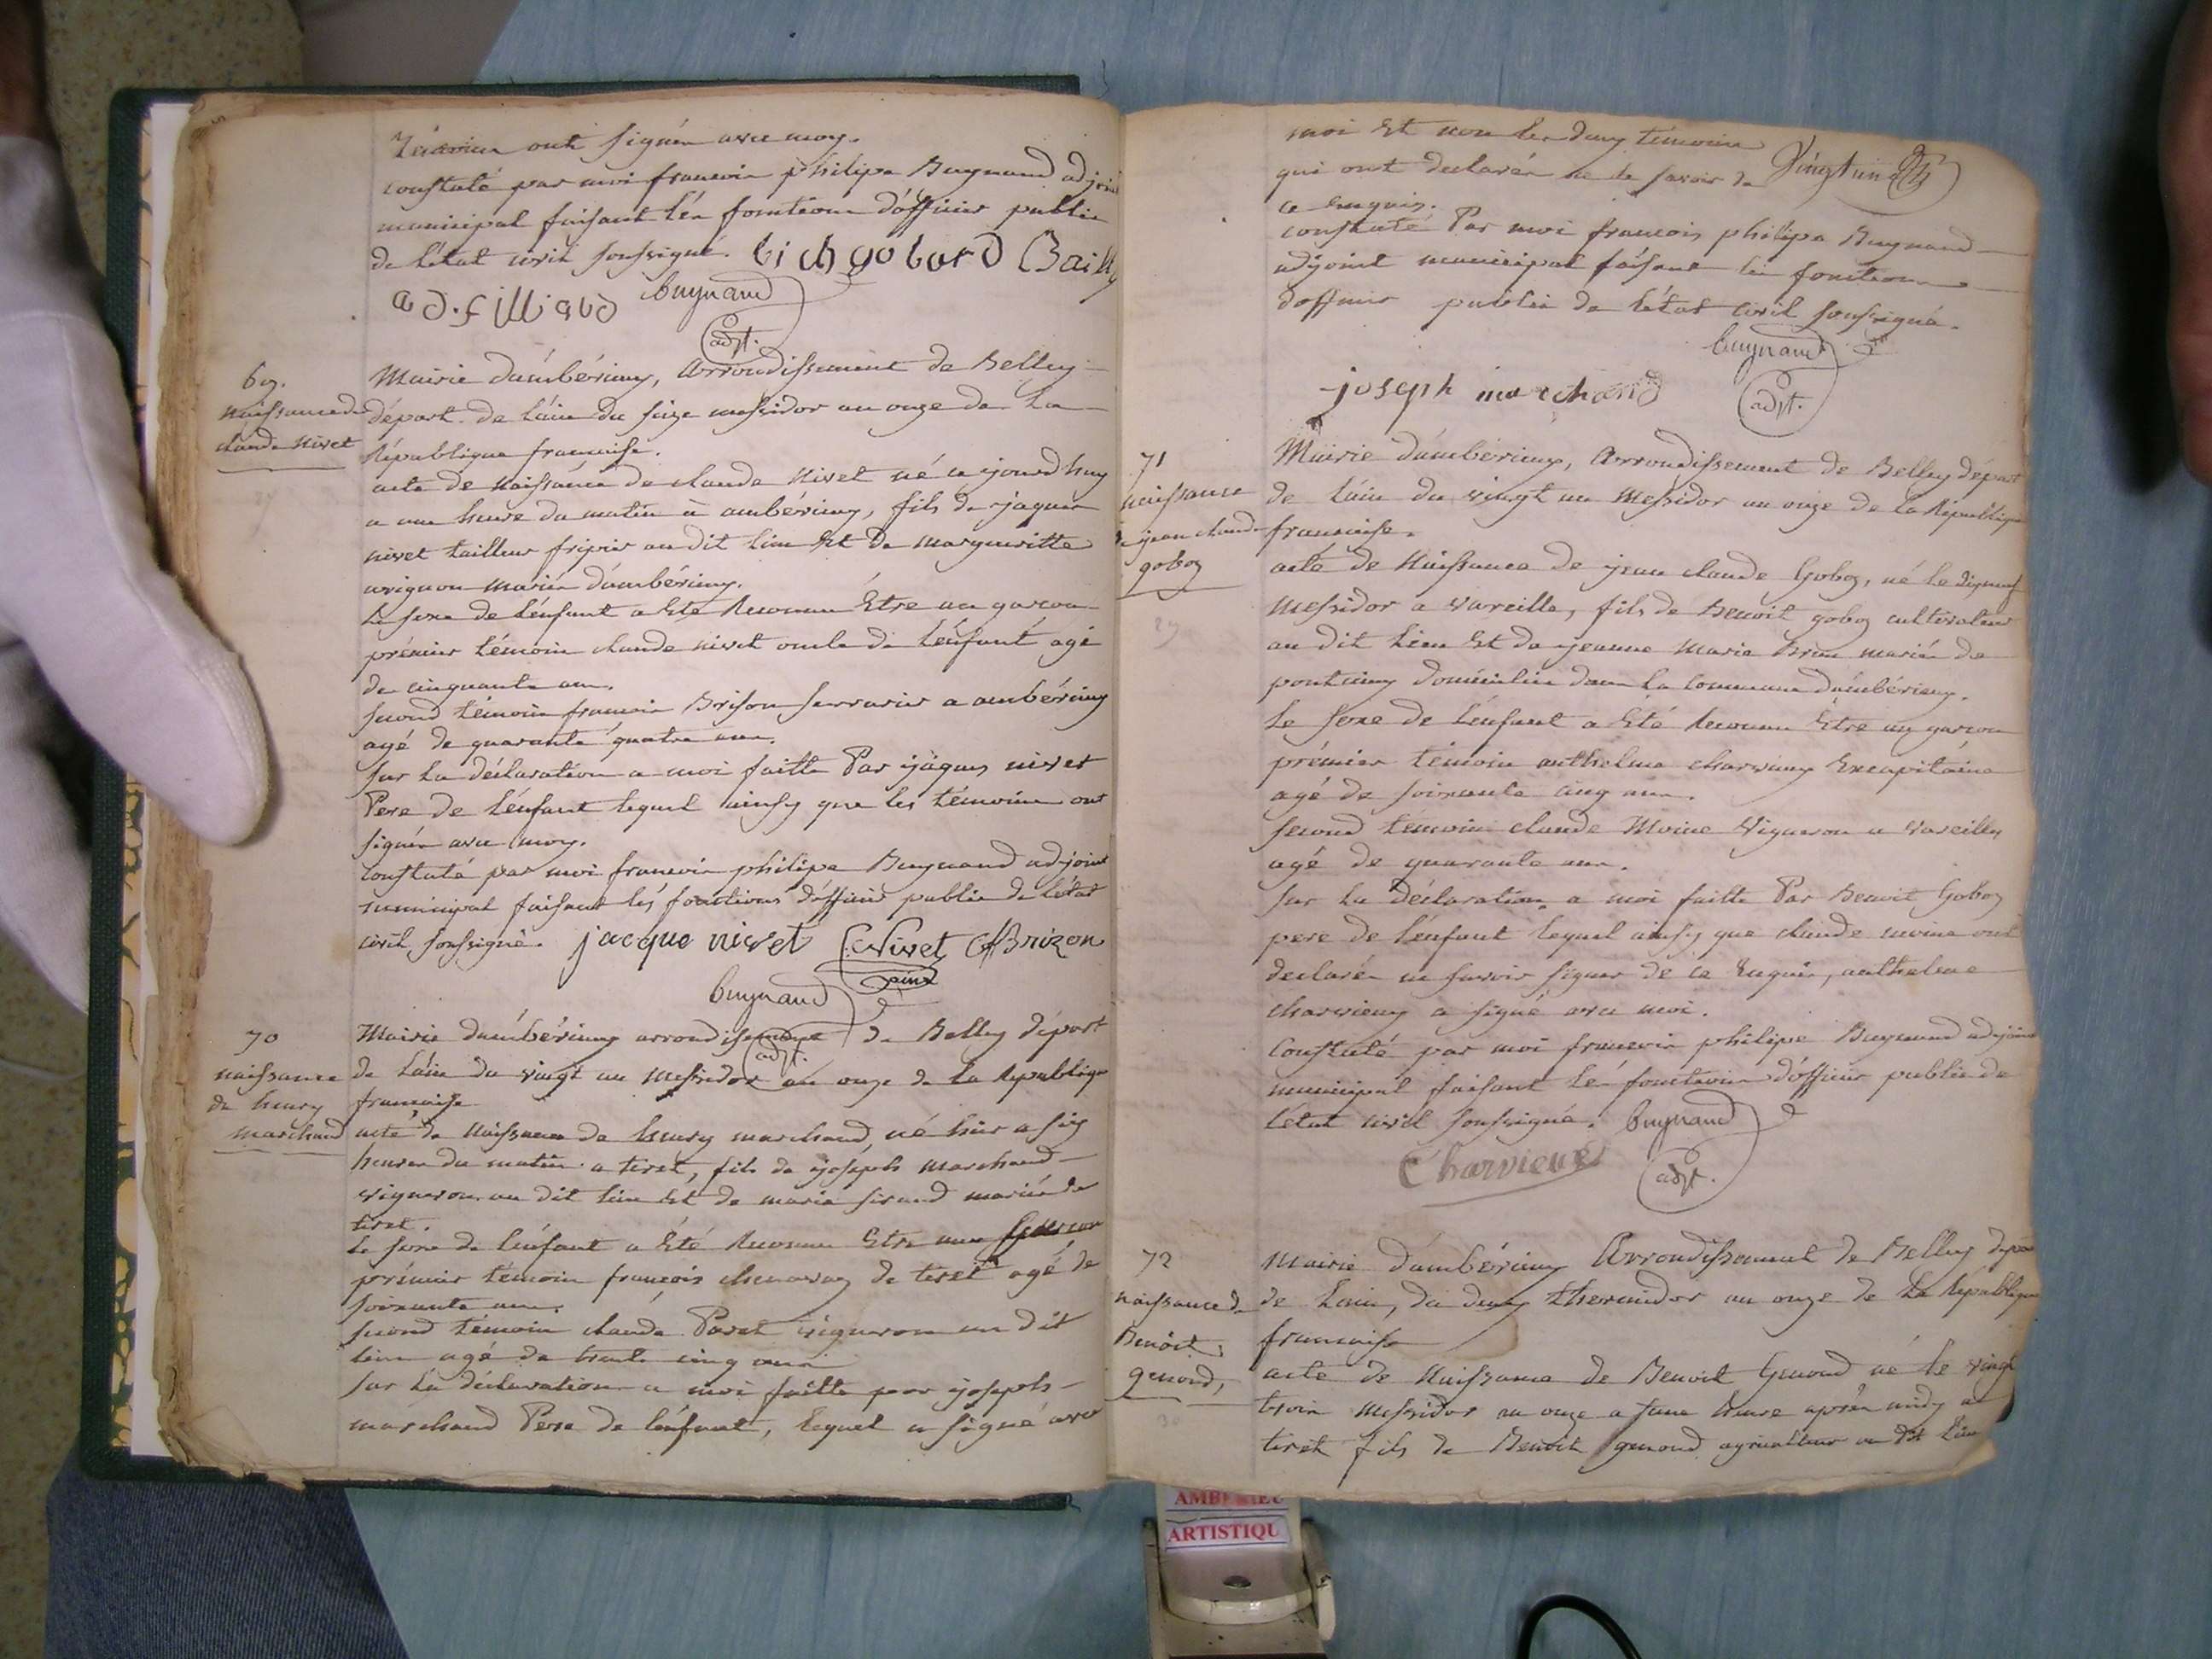 témoins ont signés avec moy.
constaté par moi francois philipe Buynand adjoint
municipal faisant lés fonctions d'officier public
de l'état civil soussigné. bich gobard Bailly
a d. filliaud buynand
adjt.
69.
naissance de
claude nivet
Mairie d'ambérieux, Arrondissement de Belley
départ. de l'ain du seize messidor an onze de La
République francaise.
acte de Naissance de claude Nivet né ce jourd'huy
a une heure du matin à ambérieux, fils de jaques
nivet tailleur fripier au dit lieu Et de margueritte
mariés d'ambérieux.
Le sexe de l'enfant a Eté Reconnu Être un garcon
prémier témoin claude nivet oncle de l'enfant agé
de cinquante ans.
second témoin francois Brison serrurier a ambérieux
agé de quarante quatre ans.
sur La déclaration a moi faitte Par jâques nivet
Pere de l'enfant lequel ainsy que les témoins ont
signés avec moy.
constaté par moi francois philipe Buynand adjoint
municipal faisant lés fonctions d'officier public de l'état
civil soussigné. jacque nivet C. Nivet Brizon
buynand
adjt.
70
naissance
de henry
marchand
Mairie d'ambérieux arrondissement de Belley départ
de L'ain du vingt un Messidor an onze de la République
francaise
acte de Naissance de henry marchand, né hier a six
heures du matin a tiret, fils de joséph Marchand
vigneron au dit lieu Et de marie sirand mariés de
tiret.
Le sexe de l'enfant a Été Reconnu Etre un Garcon
prémier témoin françois chenavaz de tiret agé de
soixante ans.
second témoin claude Paret vigneron au dit
lieu agé de trente cinq ans
sur La déclaration a moi faitte par joseph
marchand Pere de l'enfant, Lequel a signé avec
moi Et non les deux témoins
qui ont declarés ne le savoir de Vingtun
ce enquis.
constaté Par moi francois philipe Buynand
adjoint municipal faisant les fonctions
d'officier public de l'état civil soussigné.
buynand
joseph marchand adjt.
71
naissance
de jean claude
goboz
Mairie d'ambérieux, Arrondissement de Belley départ
de l'ain du vingt un Messidor an onze de La République
francaise.
acte de Naissance de jean claude Goboz, né le dixneuf
Messidor a vareille, fils de Benoit goboz cultivateur
au dit lieu Et de jeanne Marie Brun mariés de
domiciliés dans la Commune d'ambérieux.
Le sexe de l'énfant a Eté Reconnu Etre un garcon
prémier témoin anthelme charvieux Excapitaine
agé de soixante cinq ans.
second témoin claude Moine Vigneron a vareilles
agé de quarante ans.
sur La déclaration a moi faitte Par Benoit Goboz
pere de l'énfant lequel ainsy que claude moine ont
declarés ne savoir signer de ce Enquis, anthelme
charvieux a signé avec moi.
Constaté par moi francois philipe Buynand adjoint
municipal faisant lés fonctions d'officier public de
l'état civil soussigné. buynand
Charvieux adjt.
72
naissance de
Benôit
genond,
Mairie d'ambérieux Arrondissement de Belley départ
de L'ain, du deux thermidor an onze de La République
francaise
acte de Naissance de Benoit Genond né le vingt
trois Messidor an onze a une heure aprés midy a
tiret fils de Benoit genond agriculteur au dit lieu
AMBERIEU
ARTISTIQU